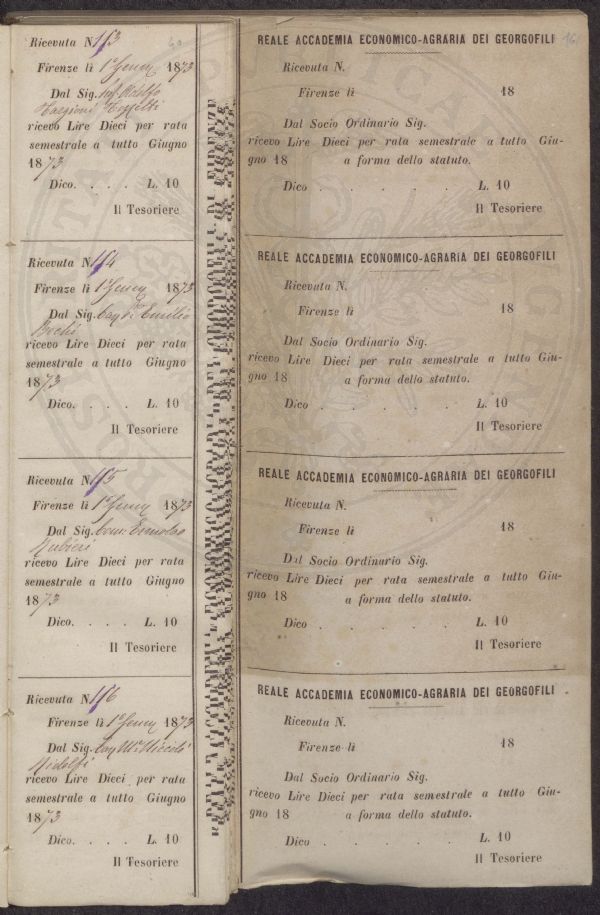 Ricevuta N. 113
Firenze li 1° Genn 1873
Dal Sig.
Targioni Tozzetti
ricevo Lire Dieci per rata
semestrale a tutto Giugno
1873
Dico. . . . L. 10
Il Tesoriere
Ricevuta N. 114
Firenze li 1° Genn 1873
Dal Sig. Emilio
Bechi
ricevo Lire Dieci per rata
semestrale a tutto Giugno
1873
Dico. . . . L. 10
Il Tesoriere
Ricevuta N. 115
Firenze li 1° Genn 1873
Dal Sig. Ermolao
Rubieri
ricevo Lire Dieci per rata
semestrale a tutto Giugno
1873
Dico. . . . L. 10
Il Tesoriere
Ricevuta N. 116
Firenze li 1° Genn 1873
Dal Sig. Niccolò
Ridolfi
ricevo Lire Dieci per rata
semestrale a tutto Giugno
1873
Dico. . . . L. 10
Il Tesoriere
REALE ACCADEMIA ECONOMICO-AGRARIA DEI GEORGOFILI
Ricevuta N.
Firenze li 18
Dal Socio Ordinario Sig.
ricevo Lire Dieci per rata semestrale a tutto Giu-
gno 18 a forma dello statuto.
Dico . . . . L. 10
Il Tesoriere
REALE ACCADEMIA ECONOMICO-AGRARIA DEI GEORGOFILI
Ricevuta N.
Firenze li 18
Dal Socio Ordinario Sig.
ricevo Lire Dieci per rata semestrale a tutto Giu-
gno 18 a forma dello statuto.
Dico . . . . L. 10
Il Tesoriere
REALE ACCADEMIA ECONOMICO-AGRARIA DEI GEORGOFILI
Ricevuta N.
Firenze li 18
Dal Socio Ordinario Sig.
ricevo Lire Dieci per rata semestrale a tutto Giu-
gno 18 a forma dello statuto.
Dico . . . . L. 10
Il Tesoriere
REALE ACCADEMIA ECONOMICO-AGRARIA DEI GEORGOFILI
Ricevuta N.
Firenze li 18
Dal Socio Ordinario Sig.
ricevo Lire Dieci per rata semestrale a tutto Giu-
gno 18 a forma dello statuto.
Dico . . . . L. 10
Il Tesoriere